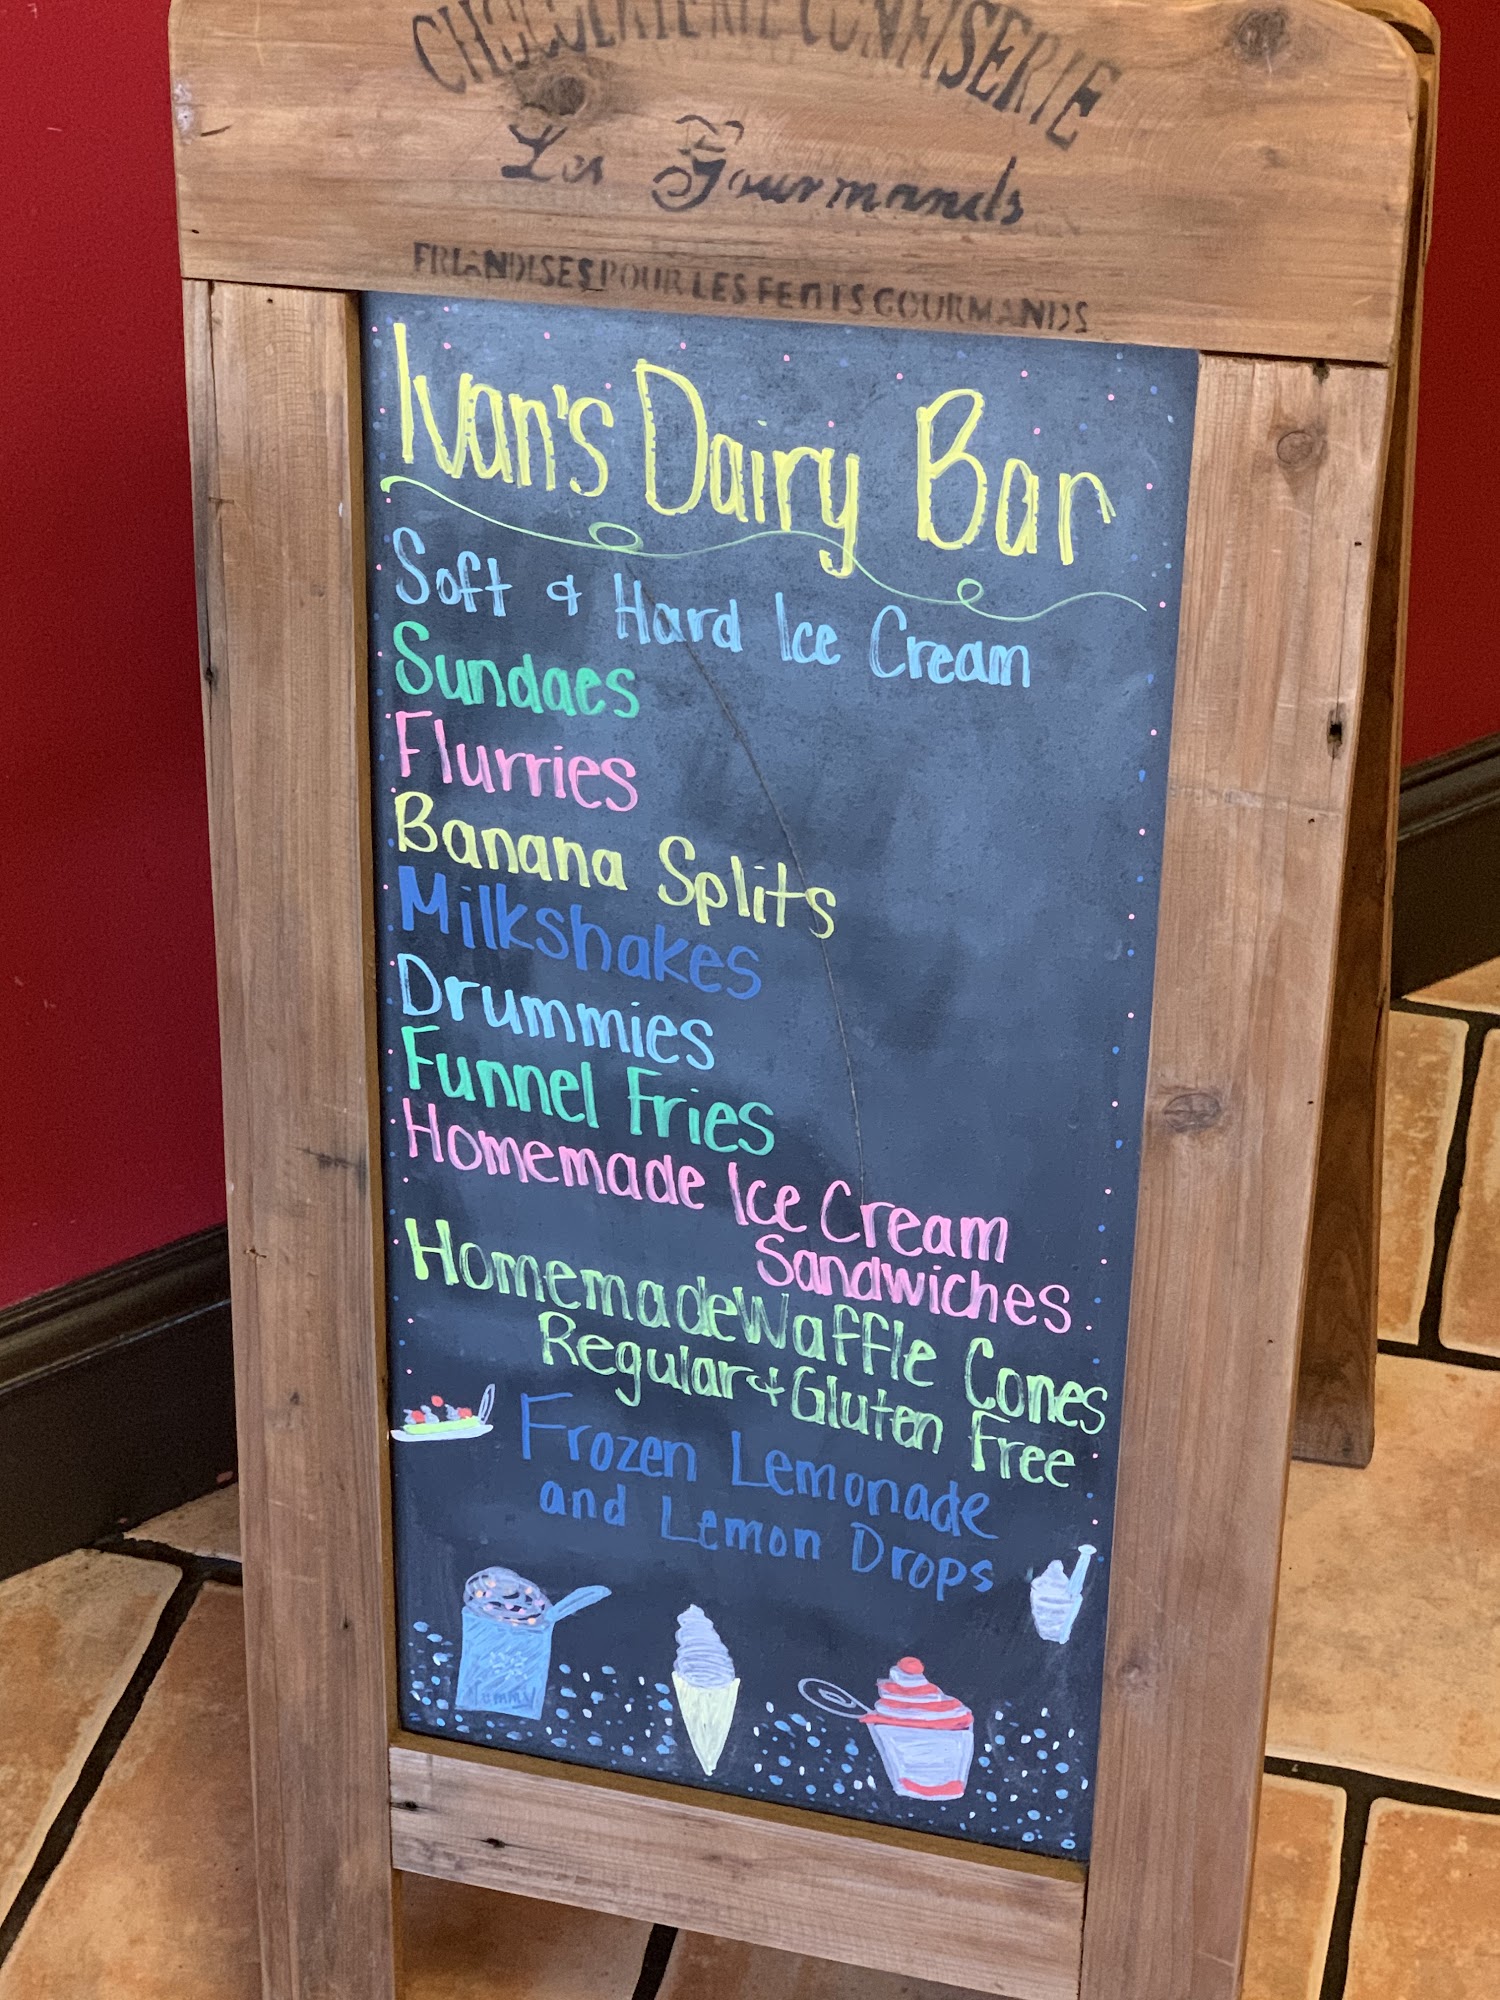 CHOCOLATERIE CONFISERIE
Les Gourmands
FRIANDISES POUR LES PETITS GOURMANDS
Ivan's Dairy Bar
Soft & Hard Ice Cream
Sundaes
Flurries
Banana Splits
Milkshakes
Drummies
Funnel Fries
Homemade Ice Cream
Sandwiches
Homemade Waffle Cones
Regular & Gluten Free
Frozen Lemonade
and Lemon Drops
Yummy